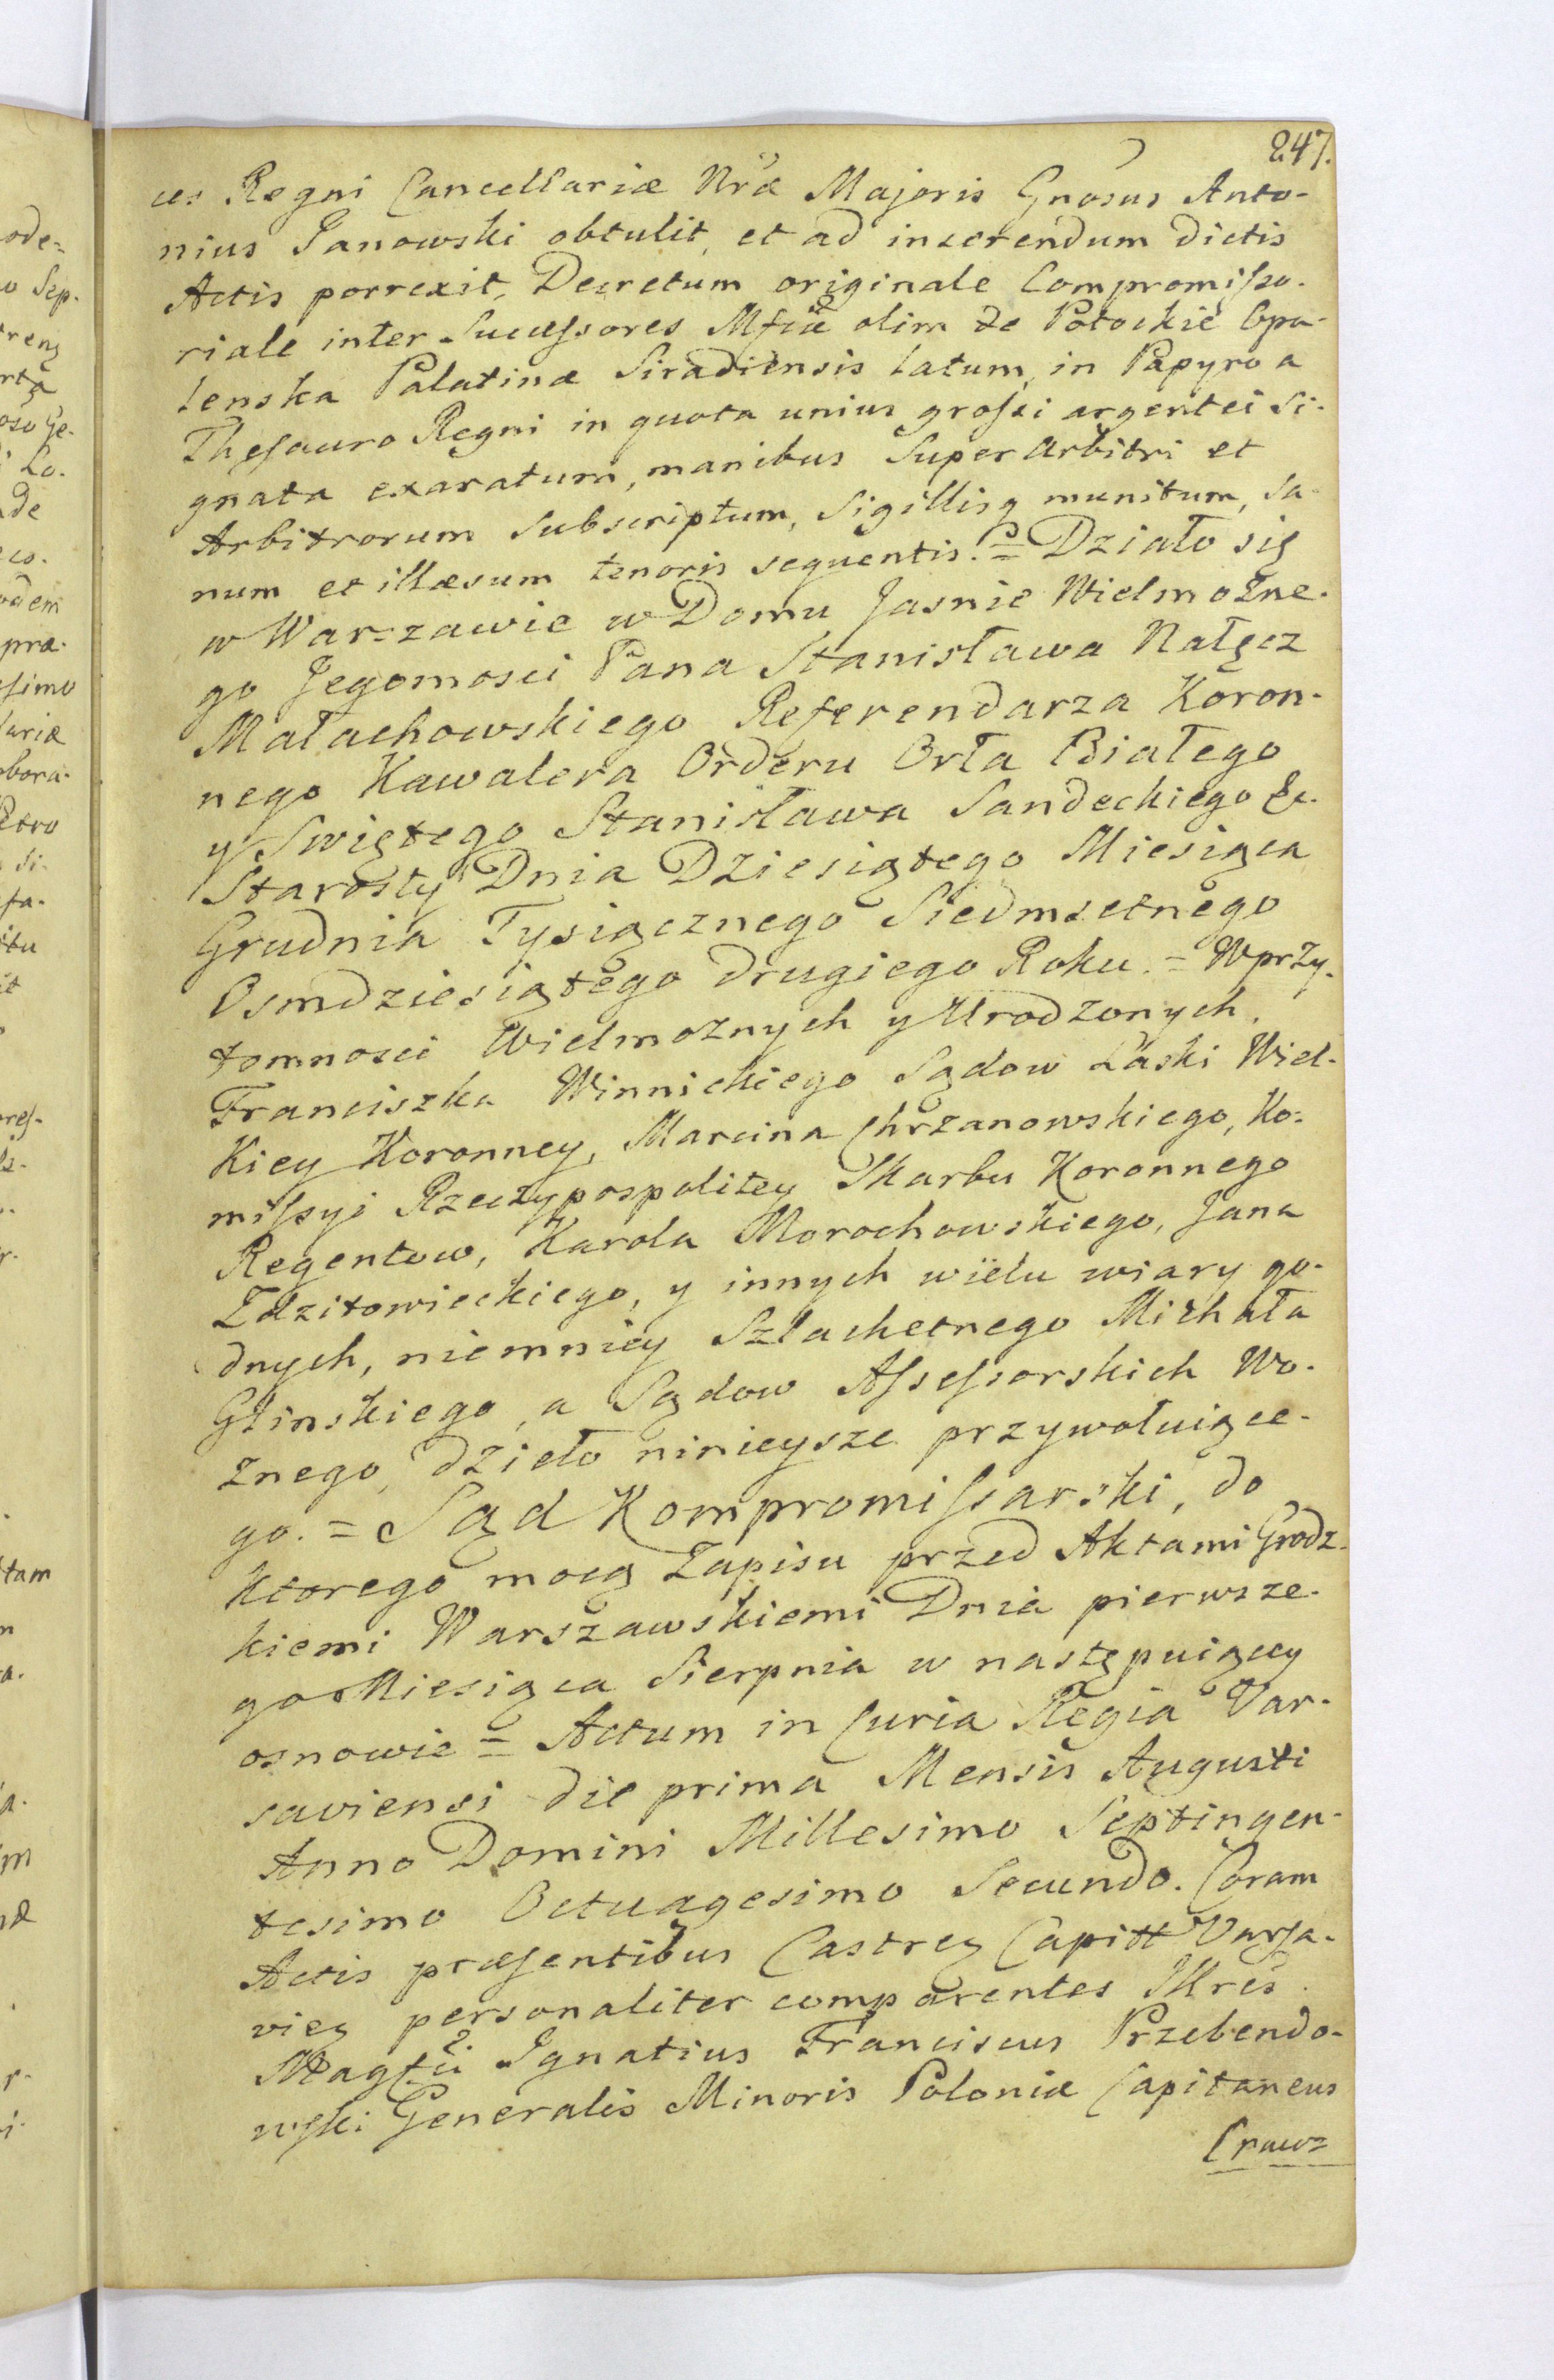 247.
ces Regni Cancellariæ Nræ Majoris Gnosus Anto-
nius Janowski obtulit, et ad inserendum dictis
Actis porrexit, Decretum originale Compromisso-
riale inter Sucessores Mfcæ olim de Potockie Opa-
lenska Palatinæ Siradiensis latum, in Papyro a
Thesauro Regni in quota unius grossi argentei si-
gnata exaratum, manibus Super Arbitri et
Arbitrorum Subscriptum, Sigillisq munitum, sa-
num et illæsum tenoris sequentis. = Działo się
w Warszawie w Domu Jasnie Wielmożne-
go Jegomosci Pana Stanisława Nałęcz
Małachowskiego Referendarza Koron-
nego Kawalera Orderu Orła Białego
y Swiętego Stanisława Sandeckiego &c.
Starosty Dnia Dziesiątego Miesiąca
Grudnia Tysiącznego Siedmsetnego
Osmdziesiątego drugiego Roku. = W przy-
tomnosci Wielmożnych y Urodzonych,
Franciszka Winnickiego Sądow Laski Wiel-
kiey Koronney, Marcina Chrzanowskiego, Ko-
missyi Rzeczypospolitey Skarbu Koronnego
Regentow, Karola Morochowskiego, Jana
Zdzitowieckiego, y innych wielu wiary go-
dnych, niemniey Szlachetnego Michała
Glinskiego, a Sądow Assessorskich Wo-
znego, dzieło ninieysze przywołuiące-
go. = Sąd Kompromissarski, do
ktorego mocą Zapisu przed Aktami Grodz-
kiemi Warszawskiemi Dnia pierwsze-
go Miesiąca Sierpnia w następuiącey
osnowie = Actum in Curia Regia Var-
saviensi die prima Mensis Augusti
Anno Domini Millesimo Septingen-
tesimo Octuagesimo Secundo. Coram
Actis præsentibus Castren Capitt Varsa-
vien personaliter comparentes Illres
Magfci Ignatius Franciscus Przebendo-
wski Generalis Minoris Poloniæ Capitaneus
Cracv=